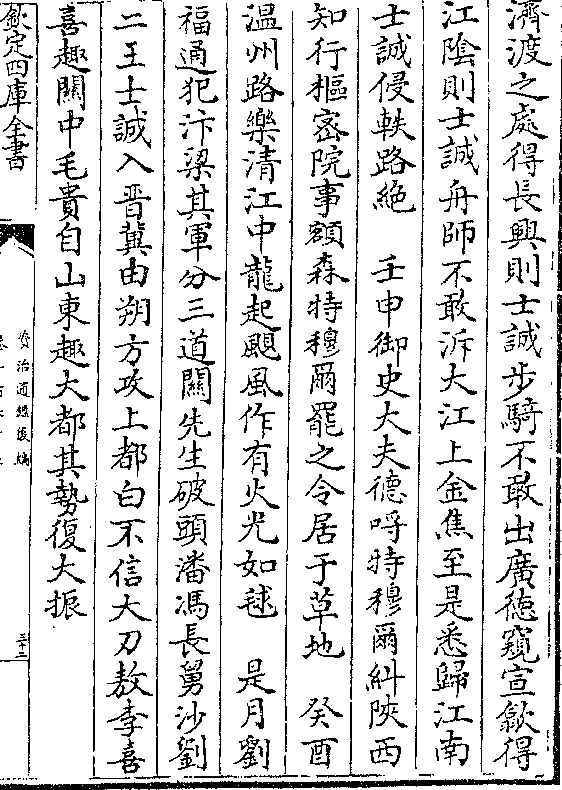 濟渡之處得長興則士誠步騎不敢出廣德窺宣歙得
江陰則士誠舟師不敢泝大江上金焦至是悉歸江南
士誠侵軼路絶　壬申御史大夫德哷特穆爾糾陜西
知行樞密院事額森特穆爾罷之令居于草地　癸酉
温州路樂清江中龍起颶風作有火光如毬　是月劉
福通犯汴梁其軍分三道關先生破頭潘馮長舅沙劉
二王士誠入晉冀由朔方攻上都白不信大刀敖李喜
喜趣關中毛貴自山東趣大都其勢復大振
欽定四庫全書
資治通鑑後編
三十二